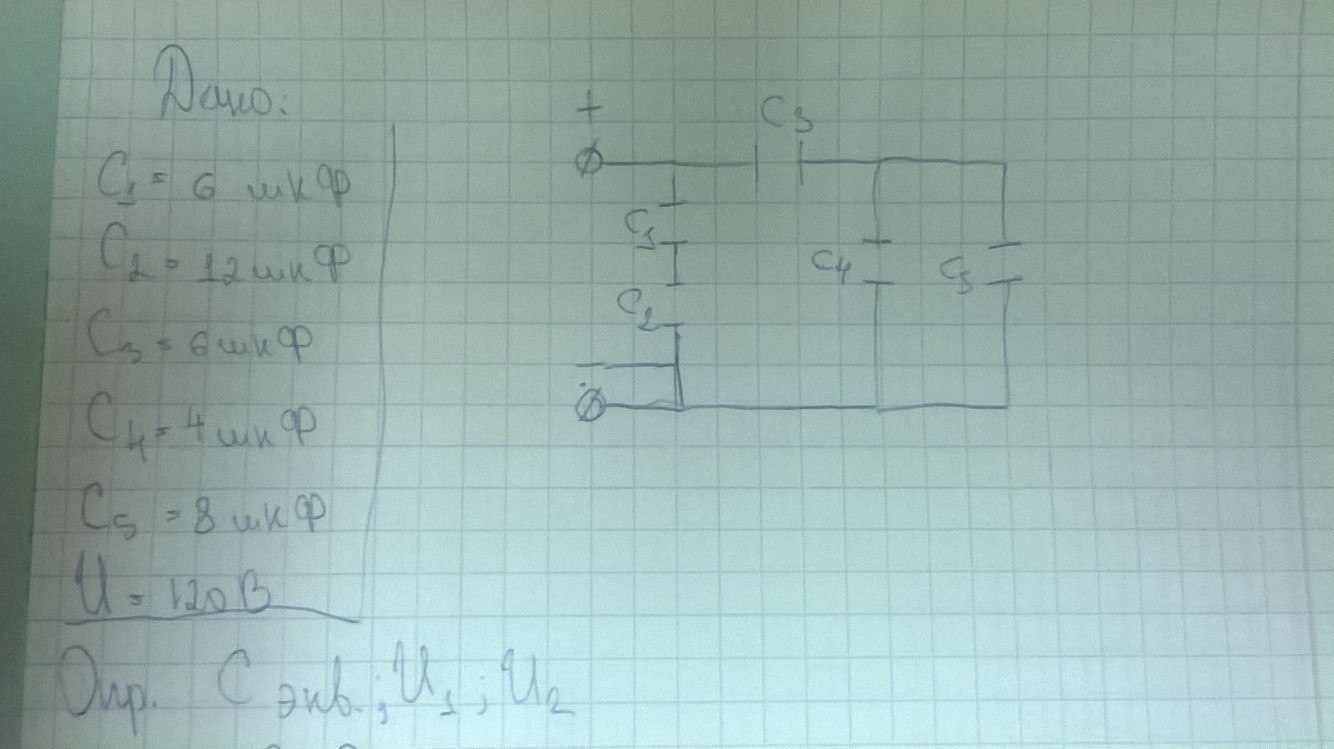 Дано:
C1 = 6 мкФ
C2 = 12 мкФ
C3 = 6 мкФ
C4 = 4 мкФ
C5 = 8 мкФ
U = 120 В
Опр. C экв.; U1; U2
+
C3
C1
C4
C5
C2
−